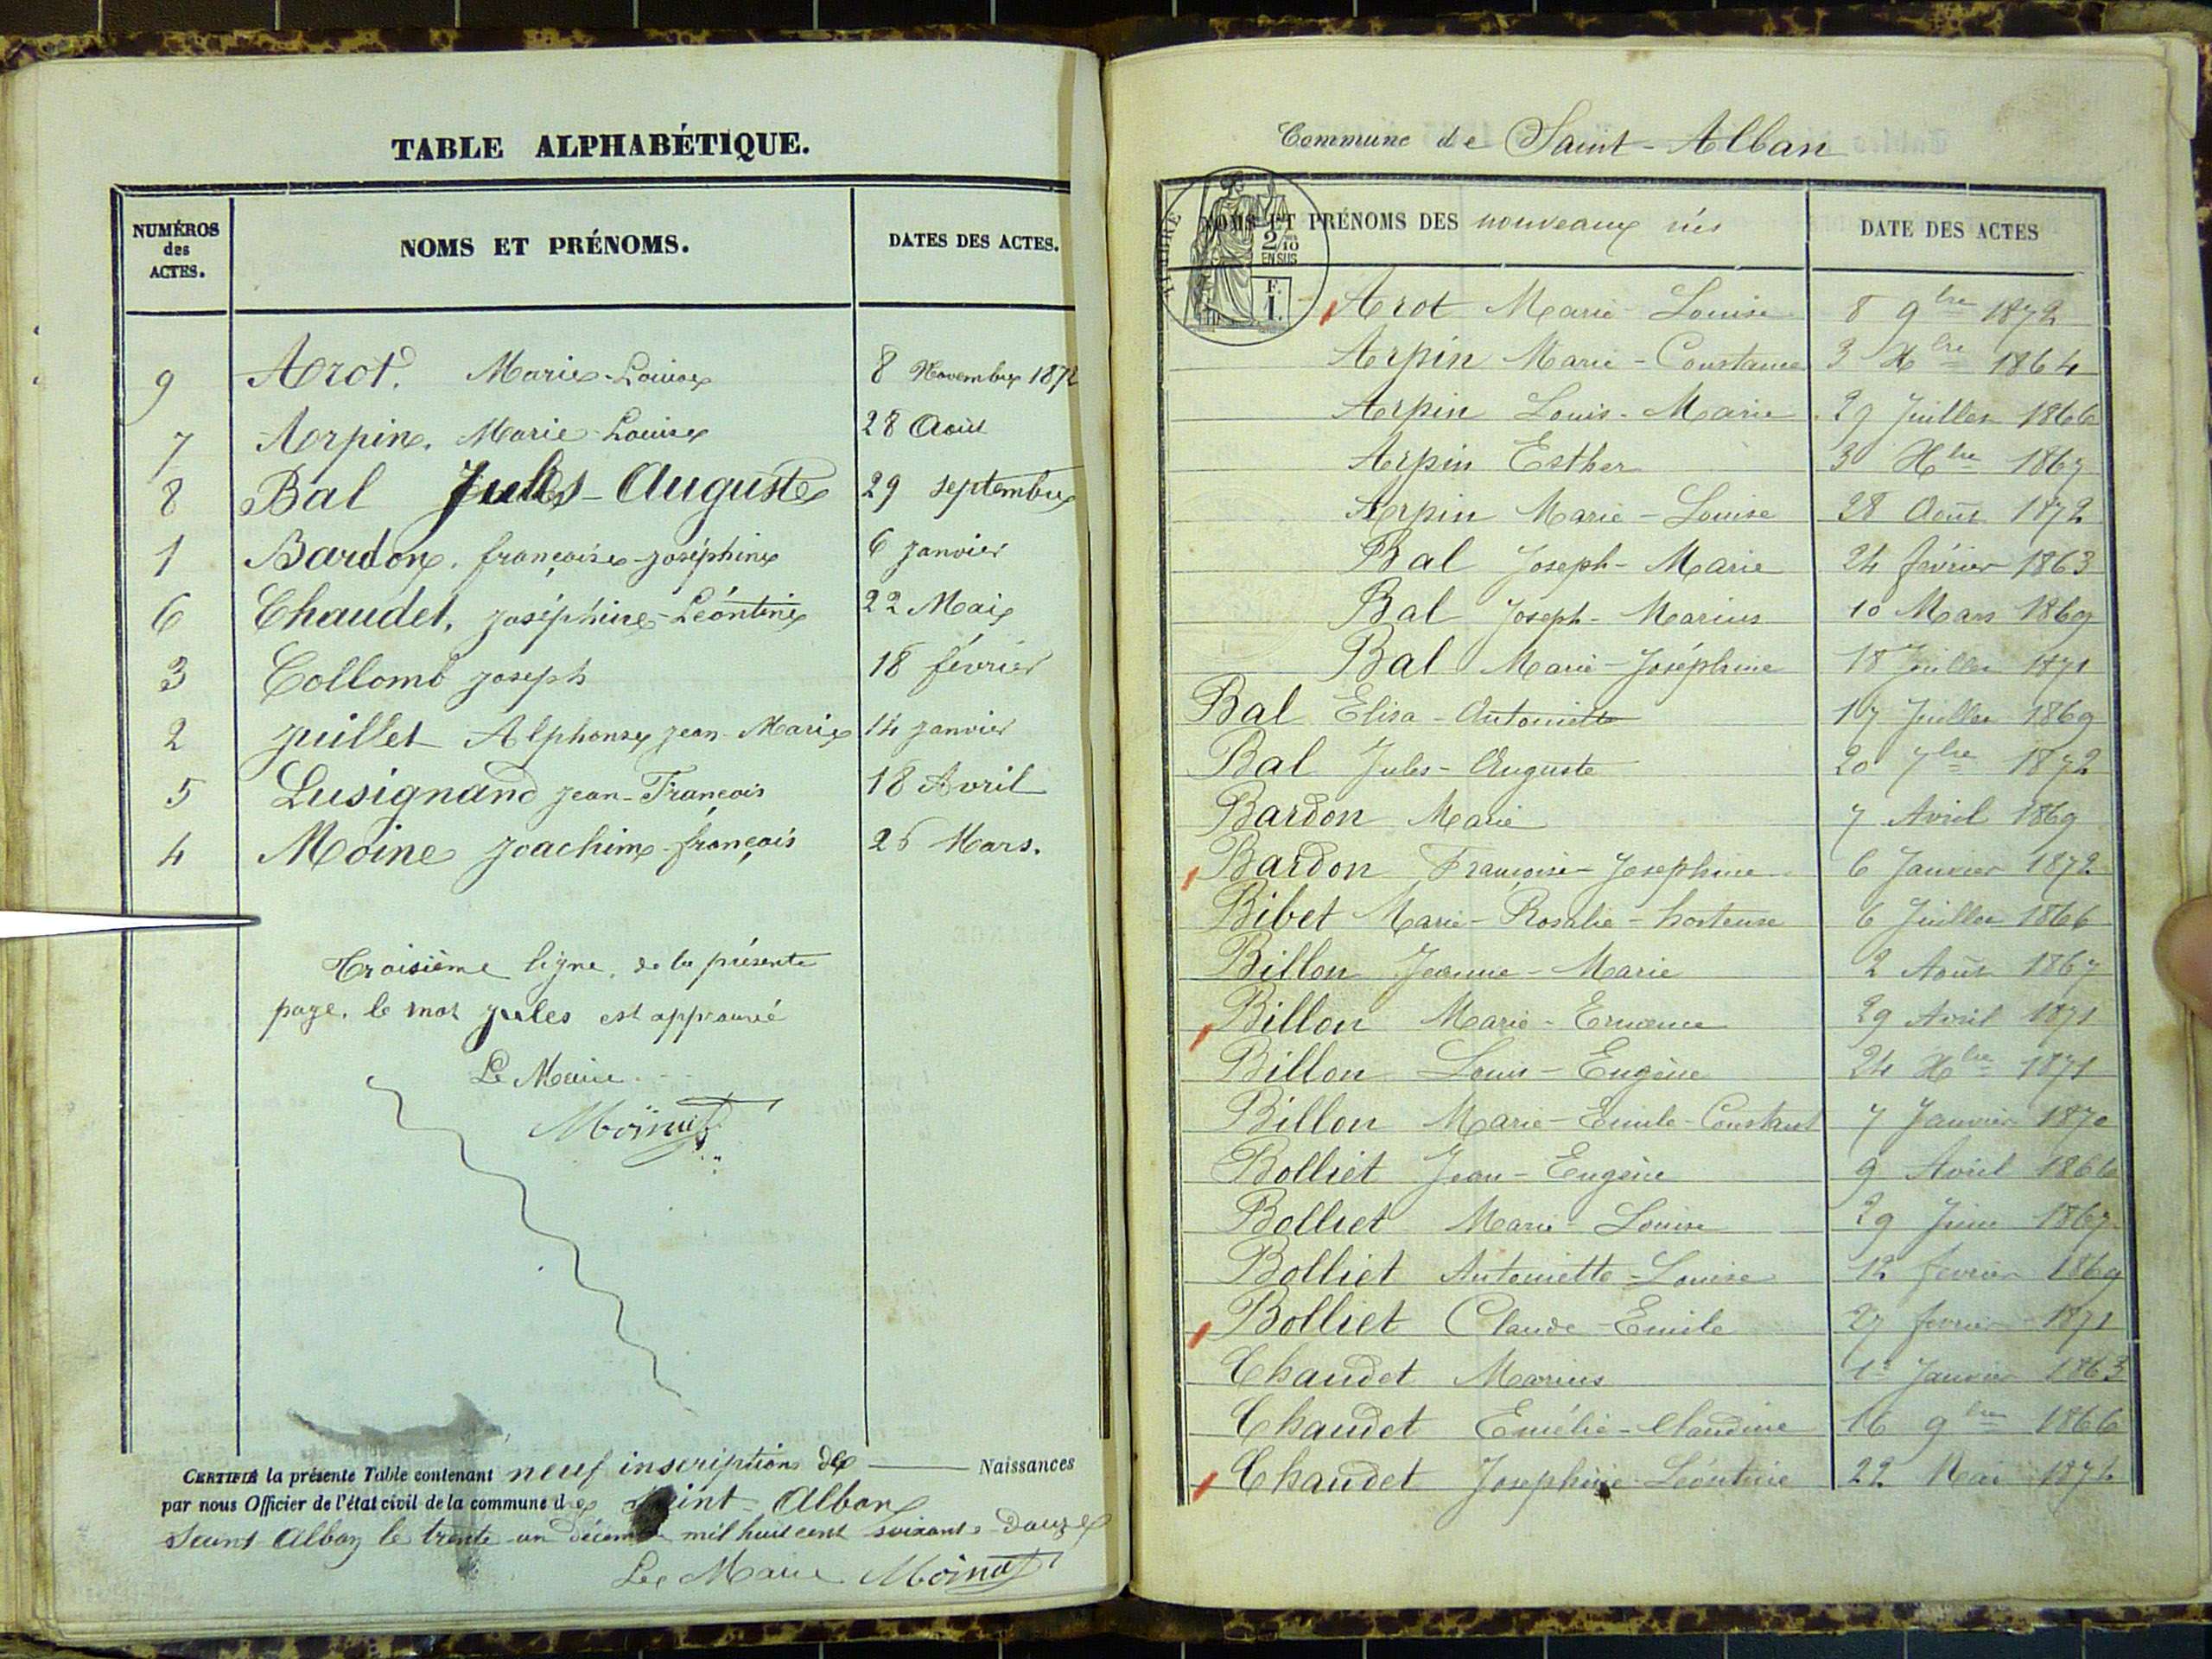 TABLE ALPHABÉTIQUE.
NUMÉROS des ACTES. NOMS ET PRÉNOMS. DATES DES ACTES.
9 Arot. Marie-Louise 8 Novembre 1872
7 Arpin. Marie-Louise 28 Août
8 Bal Jules-Auguste 29 septembre
1 Bardon. françoise-joséphine 6 janvier
6 Chaudet, joséphine-Léontine 22 Mai
3 Collomb joseph 18 février
2 juillet Alphonse jean-Marie 14 janvier
5 Lusignand jean-François 18 Avril
4 Moine joachim-françois 26 Mars.
Troisième ligne, de la présente
page, le mot jules est approuvé
Le Maire
CERTIFIÉ la présente Table contenant neuf inscriptions de Naissances
par nous Officier de l'état civil de la commune de Saint-Alban
Saint Alban le trente un décembre mil huit cent soixante-douze
Le Maire
Commune de Saint-Alban
NOMS ET PRÉNOMS DES nouveaux nés DATE DES ACTES
TIMBRE
2/10
EN SUS
F.
1.
Arot Marie-Louise 8 9bre 1872
Arpin Marie-Constance 3 Xbre 1864
Arpin Louis-Marie 29 Juillet 1866
Arpin Esther 3 Xbre 1867
Arpin Marie-Louise 28 Août 1872
Bal Joseph-Marie 24 février 1863
Bal Joseph-Marius 10 Mars 1869
Bal Marie-Joséphine 18 Juillet 1871
Bal Elisa-Antoinette 17 Juillet 1869
Bal Jules-Auguste 20 7bre 1872
Bardon Marie 7 Avril 1869
Bardon Françoise-Josephine 6 Janvier 1872
Bibet Marie-Rosalie-hortense 6 Juillet 1866
Billon Jeanne-Marie 2 Août 1867
Billon Marie- 29 Avril 1871
Billon Louis-Eugène 24 Xbre 1871
Billon Marie-Emile-Constant 7 Janvier 1870
Bolliet Jean-Eugène 9 Avril 1866
Bolliet Marie-Louise 29 Juin 1867
Bolliet Antoinette-Louise 12 février 1869
Bolliet Claude-Emile 27 février 1871
Chaudet Marius 1er Janvier 1863
Chaudet Emélie-Claudine 16 9bre 1866
Chaudet Josephine-Léontine 22 Mai 1872